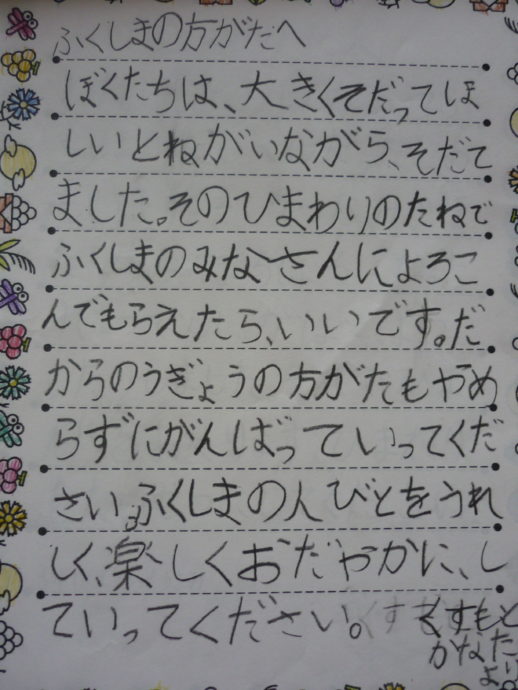 ふくしまの方がたへ
ぼくたちは、大きくそだってほ
しいとねがいながら、そだて
ました。そのひまわりのたねで
ふくしまのみなさんによろこ
んでもらえたら、いいです。だ
からのうぎょうの方がたもやめ
らずにがんばっていってくだ
さい。ふくしまの人びとをうれ
しく、楽しくおだやかに、し
ていってください。
くすもと
かなた
より